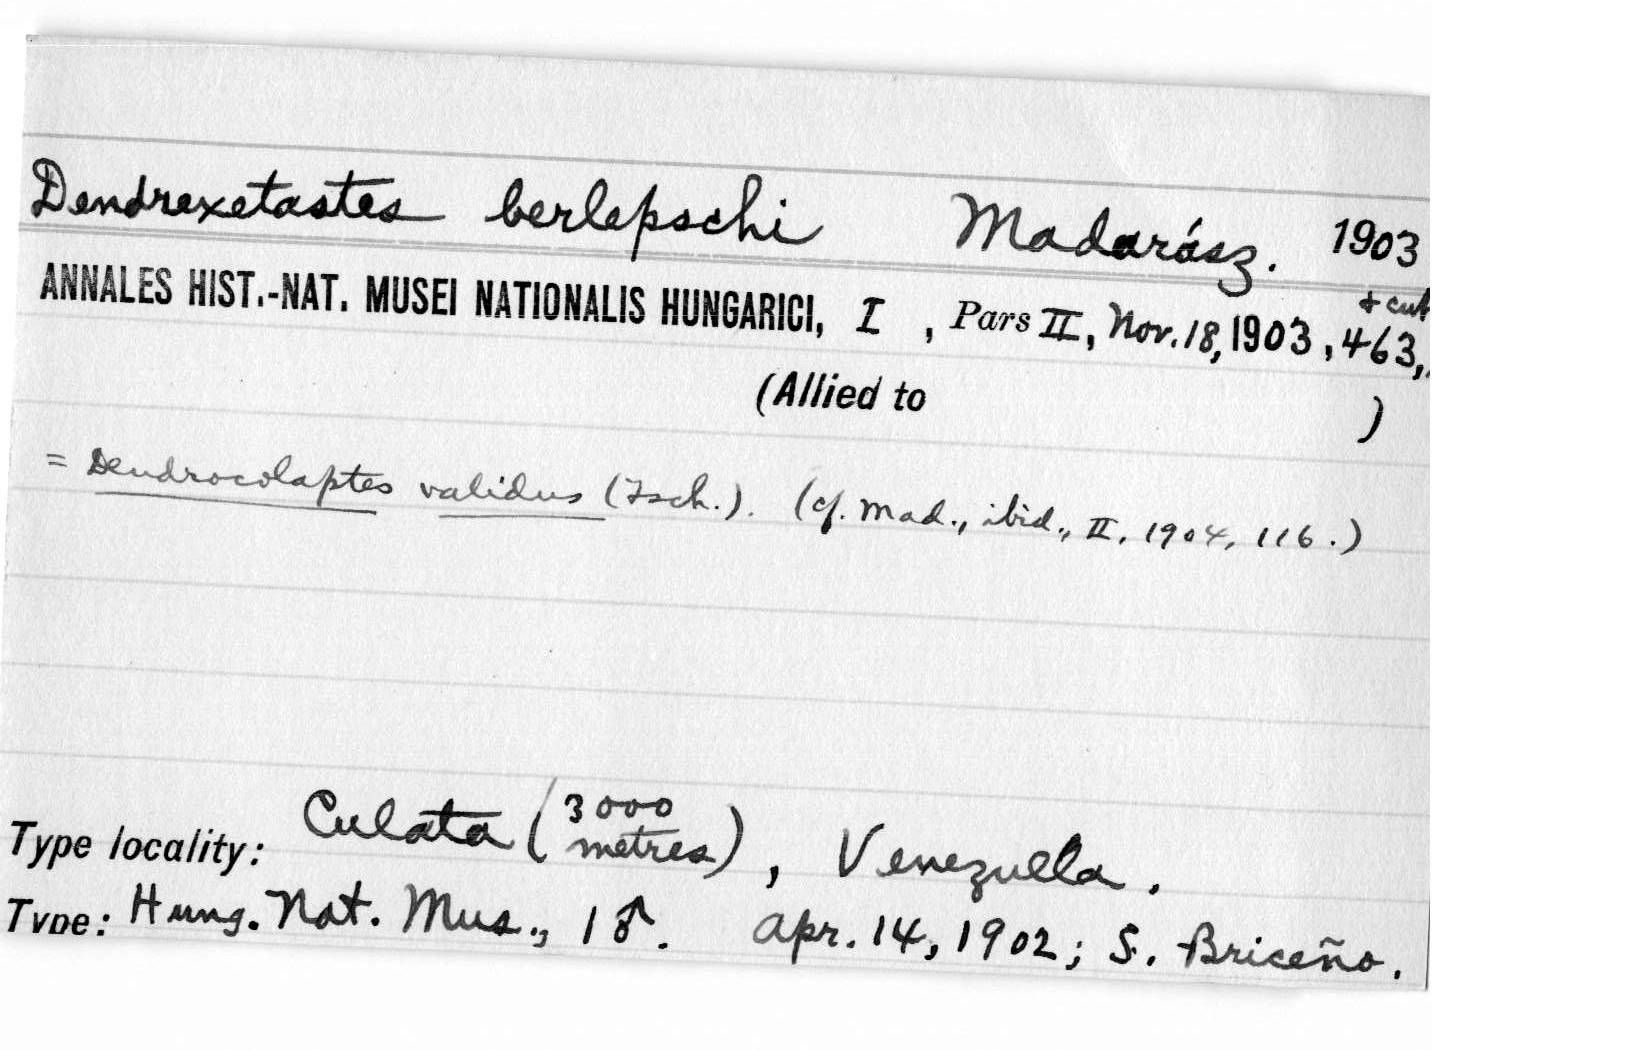 Dendrexetastes berlepschi Madarász. 1903
ANNALES HIST.-NAT. MUSEI NATIONALIS HUNGARICI, I, Pars II, Nov. 18, 1903, 463, + cut
(Allied to )
= Dendrocolaptes validus (Tsch.). (cf. Mad., ibid., II, 1904, 116.)
Type locality: Culata (3000 metres), Venezuela.
Type: Hung. Nat. Mus., 1 ♂. Apr. 14, 1902; S. Briceño.